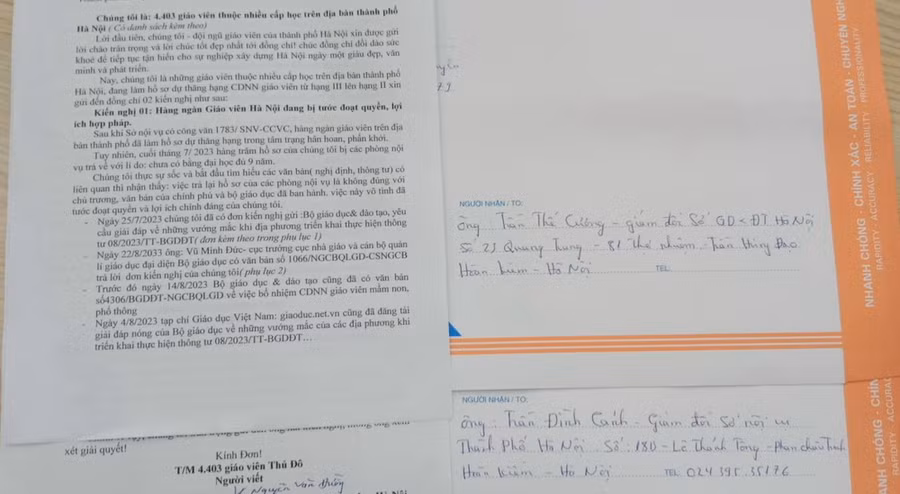 Chúng tôi là: 4.403 giáo viên thuộc nhiều cấp học trên địa bàn thành phố
Hà Nội ( Có danh sách kèm theo)
Lời đầu tiên, chúng tôi - đội ngũ giáo viên của thành phố Hà Nội xin được gửi
lời chào trân trọng và lời chúc tốt đẹp nhất tới đồng chí! chúc đồng chí dồi dào sức
khoẻ để tiếp tục tận hiến cho sự nghiệp xây dựng Hà Nội ngày một giàu đẹp, văn
minh và phát triển.
Nay, chúng tôi là những giáo viên thuộc nhiều cấp học trên địa bàn thành phố
Hà Nội, đang làm hồ sơ dự thăng hạng CDNN giáo viên từ hạng III lên hạng II xin
gửi đến đồng chí 02 kiến nghị như sau:
Kiến nghị 01: Hàng ngàn Giáo viên Hà Nội đang bị tước đoạt quyền, lợi
ích hợp pháp.
Sau khi Sở nội vụ có công văn 1783/ SNV-CCVC, hàng ngàn giáo viên trên địa
bàn thành phố đã làm hồ sơ dự thăng hạng trong tâm trạng hân hoan, phấn khởi.
Tuy nhiên, cuối tháng 7/ 2023 hàng trăm hồ sơ của chúng tôi bị các phòng nội
vụ trả về với lí do: chưa có bằng đại học đủ 9 năm.
Chúng tôi thực sự sốc và bắt đầu tìm hiểu các văn bản( nghị định, thông tư) có
liên quan thì nhận thấy: việc trả lại hồ sơ của các phòng nội vụ là không đúng với
chủ trương, văn bản của chính phủ và bộ giáo dục đã ban hành. việc này vô tình đã
tước đoạt quyền và lợi ích chính đáng của chúng tôi.
- Ngày 25/7/2023 chúng tôi đã có đơn kiến nghị gửi :Bộ giáo dục& đào tạo, yêu
cầu giải đáp về những vướng mắc khi địa phương triển khai thực hiện thông
tư 08/2023/TT-BGDĐT( đơn kèm theo trong phụ lục 1)
- Ngày 22/8/2033 ông: Vũ Minh Đức- cục trưởng cục nhà giáo và cán bộ quản
lí giáo dục đại diện Bộ giáo dục có văn bản số 1066/NGCBQLGD-CSNGCB
trả lời đơn kiến nghị của chúng tôi( phụ lục 2)
- Trước đó ngày 14/8/2023 Bộ giáo dục & đào tạo cũng đã có văn bản
số4306/BGDĐT-NGCBQLGD về việc bổ nhiệm CDNN giáo viên mầm non,
phổ thông
- Ngày 4/8/2023 tạp chí Giáo dục Việt Nam: giaoduc.net.vn cũng đã đăng tải
giải đáp nóng của Bộ giáo dục về những vướng mắc của các địa phương khi
triển khai thực hiện thông tư 08/2023/TT-BGDĐT…
xét giải quyết!
Kính Đơn!
T/M 4,403 giáo viên Thủ Đô
Người viết
Nguyễn Văn
NGƯỜI NHẬN / TO:
Ông: Trần Thế Cương - giám đốc Sở GD-ĐT Hà Nội
Số 23 Quang Trung - 81 Thợ nhuộm - Trần Hưng Đạo
Hoàn Kiếm - Hà Nội TEL:
NGƯỜI NHẬN / TO:
Ông: Trần Đình Cảnh - Giám đốc Sở nội vụ
Thành Phố Hà Nội. Số: 180 - Lê Thánh Tông - Phan Chu Trinh
Hoàn Kiếm - Hà Nội TEL: 024 395.35176
NHANH CHÓNG - CHÍNH XÁC - AN TOÀN - CHUYÊN NGH
RAPIDITY - ACCURACY - RELIABILITY - PROFESSIONALITY
NHANH CHÓNG - CHÍN
RAPIDITY - ACCURAC